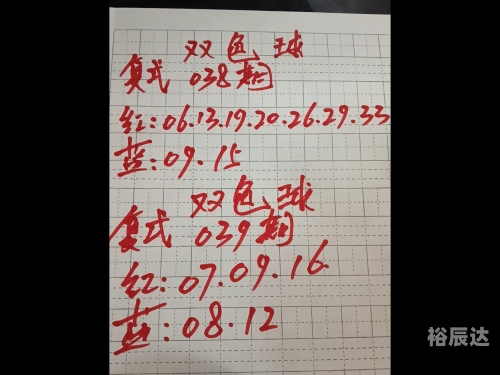 双色球
复式 038期
红:06.13.19.20.26.29.33
蓝:09.15
双色球
复式 039期
红:07.09.16
蓝:08.12
裕辰达